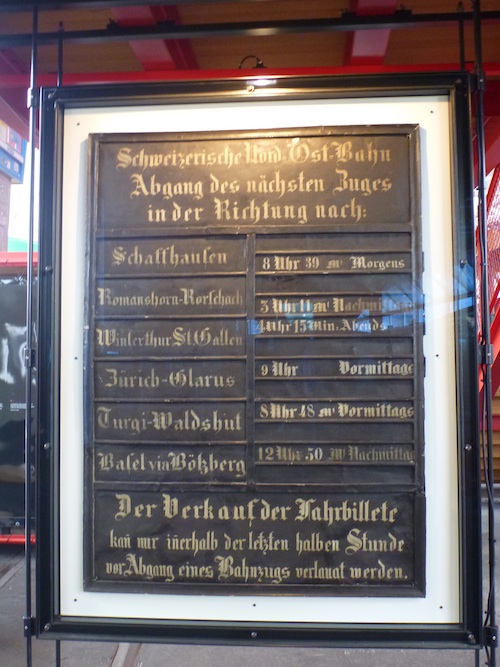 Schweizerische Nord-Ost-Bahn
Abgang des nächsten Zuges
in der Richtung nach:
Schaffhausen
8 Uhr 39 M. Morgens
Romanshorn-Rorschach
5 Uhr 11 M. Nachmittag
4 Uhr 15 Min. Abends
Winterthur St. Gallen
Zürich-Glarus
9 Uhr Vormittags
Turgi-Waldshut
8 Uhr 48 M. Vormittags
Basel via Bötzberg
12 Uhr 50 M. Nachmittag
Der Verkauf der Fahrbillete
kañ nur iñerhalb der letzten halben Stunde
vor Abgang eines Bahnzugs verlangt werden.